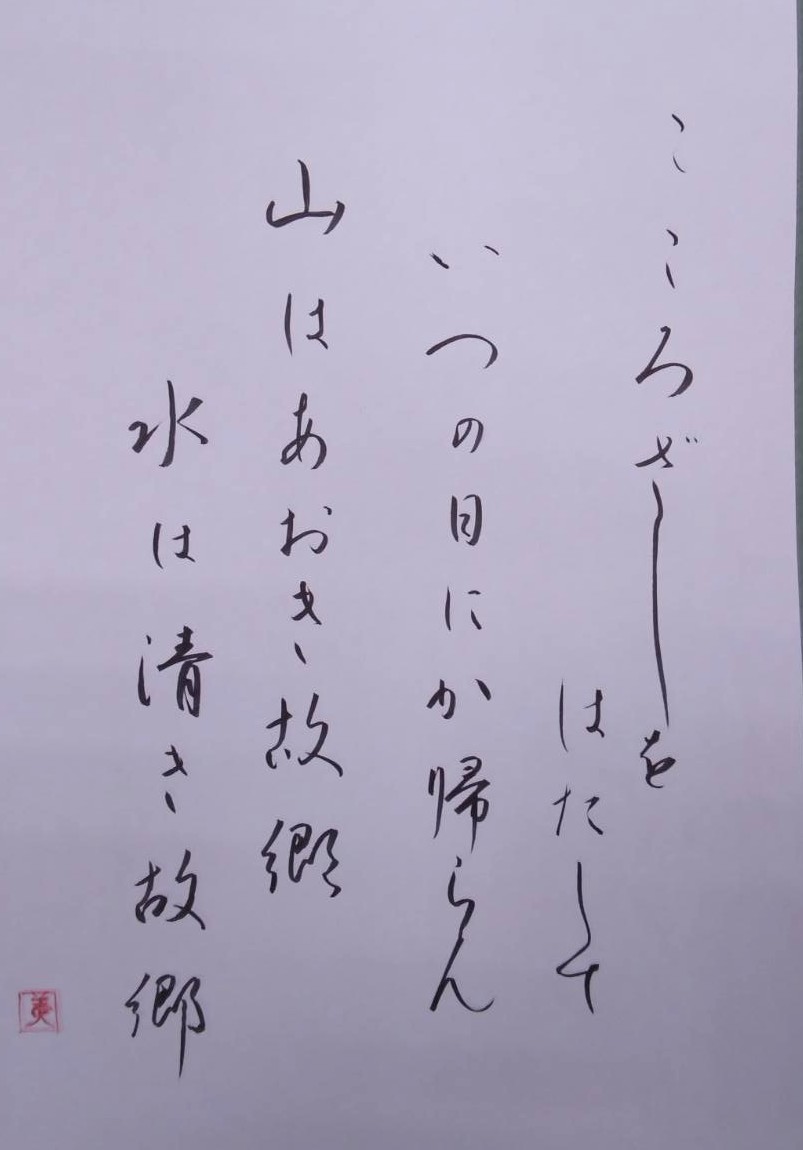 こころざしを
はたして
いつの日にか帰らん
山はあおき故郷
水は清き故郷
美